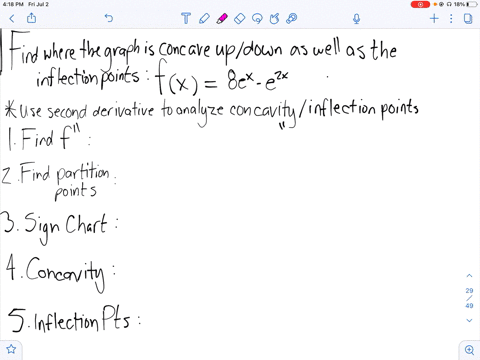 4:18 PM Fri Jul 2
18%
Find where the graph is concave up/down as well as the
inflection points: f(x) = 8eˣ - e²ˣ
*Use second derivative to analyze concavity/inflection points
1. Find f" :
2. Find partition
points:
3. Sign Chart:
4. Concavity:
5. Inflection Pts:
29
/
49